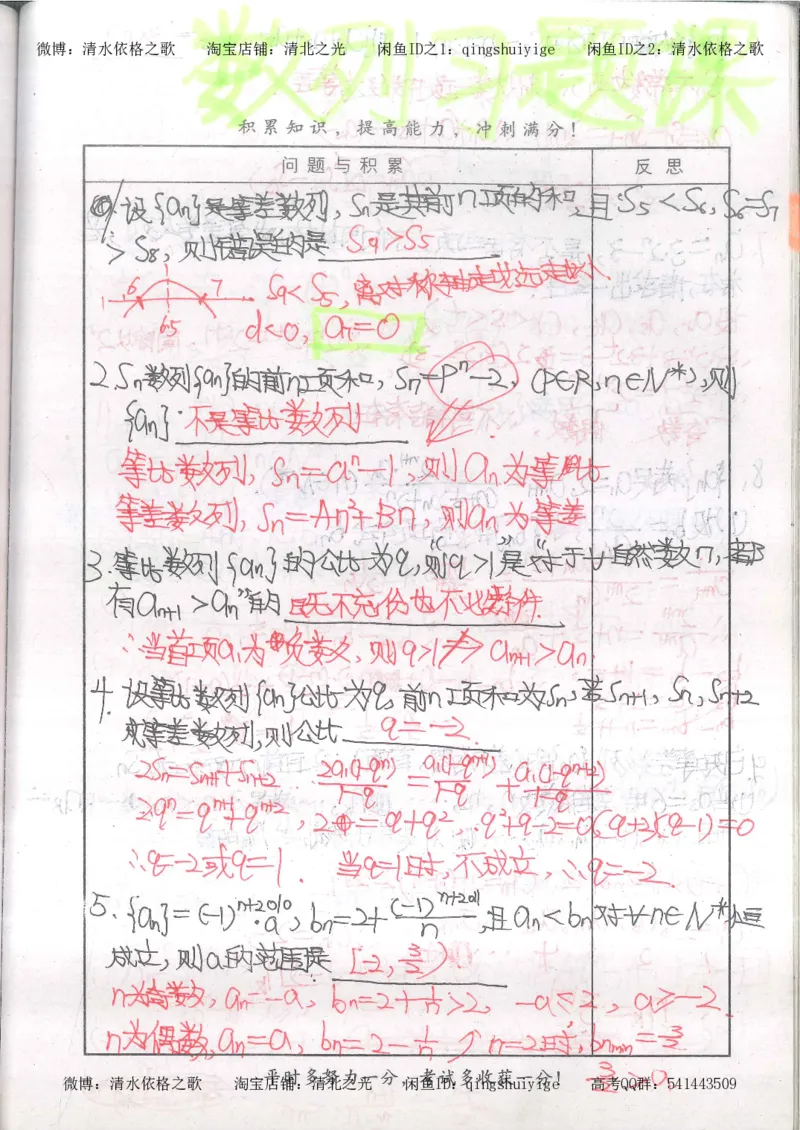 微博：清水依格之歌 淘宝店铺：清北之光 闲鱼ID之1：qingshuiyige 闲鱼ID之2：清水依格之歌
数列习题课
积累知识，提高能力，冲刺满分！
问题与积累 反思
1. 设{an}是等差数列，Sn是其前n项的和，且S5<S6，S6=S7
>S8，则错误的是 S9>S5
6 7 S9<S5，离对称轴走越远越小.
6.5 d<0，a7=0
2. Sn数列{an}的前n项和，Sn=Pⁿ-2，(P∈R，n∈N*)，则
{an} 不是等比数列.
等比数列，Sn=aⁿ-1，则an为等比
等差数列，Sn=An²+Bn，则an为等差
3. 等比数列{an}的公比为q，则“q>1”是“对于∀自然数n，都
有an+1>an”的 既不充份也不必要条件.
∴当首项a1为负数，则q>1⇏an+1>an.
4. 设等比数列{an}公比为q，前n项和为Sn，若Sn+1，Sn，Sn+2
成等差数列，则公比 q=-2.
2Sn=Sn+1+Sn+2 2a1(1-qⁿ)/1-q = a1(1-qⁿ⁺¹)/1-q + a1(1-qⁿ⁺²)/1-q
2qⁿ=qⁿ⁺¹+qⁿ⁺²，2=q+q²，q²+q-2=0 (q+2)(q-1)=0
∴q=-2或q=1. 当q=1时，不成立，∴q=-2.
5. {an}=(-1)ⁿ⁺²⁰¹⁰·a，bn=2+(-1)ⁿ⁺²⁰¹¹/n，且an<bn对∀n∈N*恒
成立，则a的范围是 [-2，3/2).
n为奇数，an=-a，bn=2+1/n>2，-a≤2，a≥-2.
n为偶数，an=a，bn=2-1/n↗ n=2时，bnmin=3/2.
平时多努力一分，考试多收获一分！ 3/2>a
微博：清水依格之歌 淘宝店铺：清北之光 闲鱼ID：qingshuiyige 高考QQ群：541443509